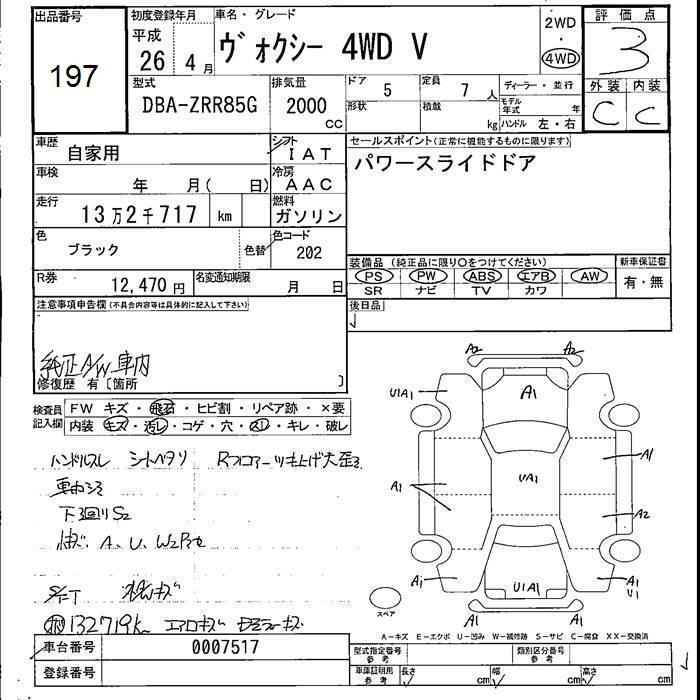 出品番号
197
初度登録年月
平成
26年4月
車名・グレード
ヴォクシー 4WD V
2WD
・
4WD
評価点
3
型式
DBA-ZRR85G
排気量
2000
CC
ドア
5
定員
7人
ディーラー・並行
形状
積載
kg
モデル年式
年
ハンドル 左・右
外装 内装
C C
車歴
自家用
シフト
IAT
セールスポイント(正常に機能するものに限ります)
パワースライドドア
車検
年 月( 日)
冷房
AAC
走行
13万2千717 km
燃料
ガソリン
色
ブラック
色替
色コード
202
装備品(純正品に限り○をつけてください)
PS PW ABS エアB AW
SR ナビ TV カワ
新車保証書
有・無
R券
12,470円
名変通知期限
月 日
後日品
注意事項申告欄(不具合内容等は具体的に記入して下さい)
純正A/W車内
修復歴 有〔箇所 〕
検査員
記入欄
FW キズ・飛石・ヒビ割・リペア跡・×要
内装 キズ・汚レ・コゲ・穴・スレ・キレ・破レ
ハンドルスレ シートヘタリ
下廻りS2
A、U、W2
132719k エアロキズ
A2 A2
U1A1
A1
A1
A1
UA1
A2
A1
U1A1
A1
U1
A1 A1
スペア
A-キズ E-エクボ U-凹み W-補修跡 S-サビ C-腐食 XX-交換済
車台番号
0007517
登録番号
型式指定番号
参考
類別区分番号
参考
車庫証明用
参考
長さ
cm
幅
cm
高さ
cm